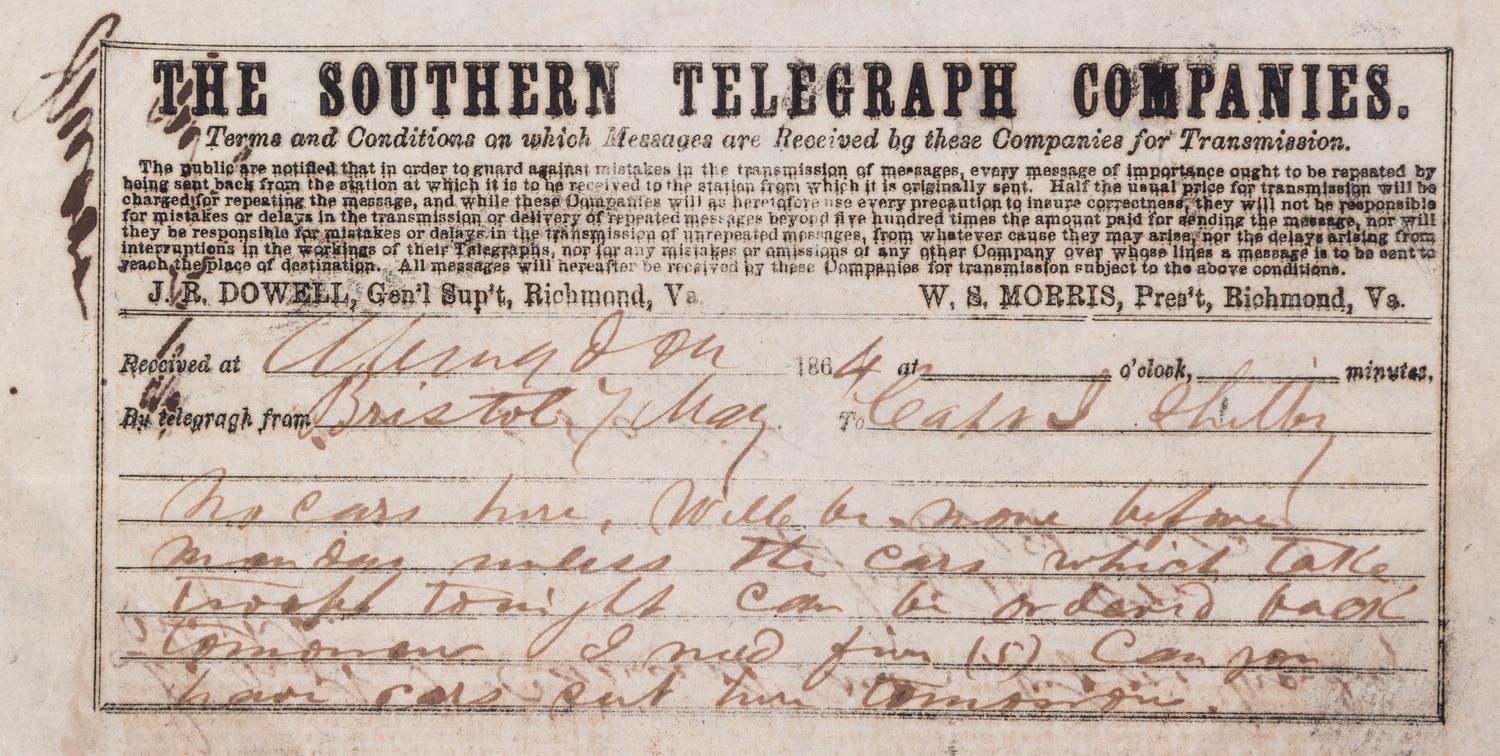 THE SOUTHERN TELEGRAPH COMPANIES.
Terms and Conditions on which Messages are Received by these Companies for Transmission.
The public are notified that in order to guard against mistakes in the transmission of messages, every message of importance ought to be repeated by
being sent back from the station at which it is to be received to the station from which it is originally sent. Half the usual price for transmission will be
charged for repeating the message, and while these Companies will as heretofore use every precaution to insure correctness, they will not be responsible
for mistakes or delays in the transmission or delivery of repeated messages beyond five hundred times the amount paid for sending the message, nor will
they be responsible for mistakes or delays in the transmission of unrepeated messages, from whatever cause they may arise, nor the delays arising from
interruptions in the workings of their Telegraphs, nor for any mistakes or omissions of any other Company over whose lines a message is to be sent to
reach the place of destination. All messages will hereafter be received by these Companies for transmission subject to the above conditions.
J. R. DOWELL, Gen'l Sup't, Richmond, Va. W. S. MORRIS, Pres't, Richmond, Va.
Received at Abingdon 1864 at o'clock, minutes,
By telegragh from Bristol 7 May To Capt Shelby
No cars here, Will be none before
monday unless the cars which take
troops tonight can be ordered back
tomorrow I need five (5) Can you
have cars sent here tomorrow.